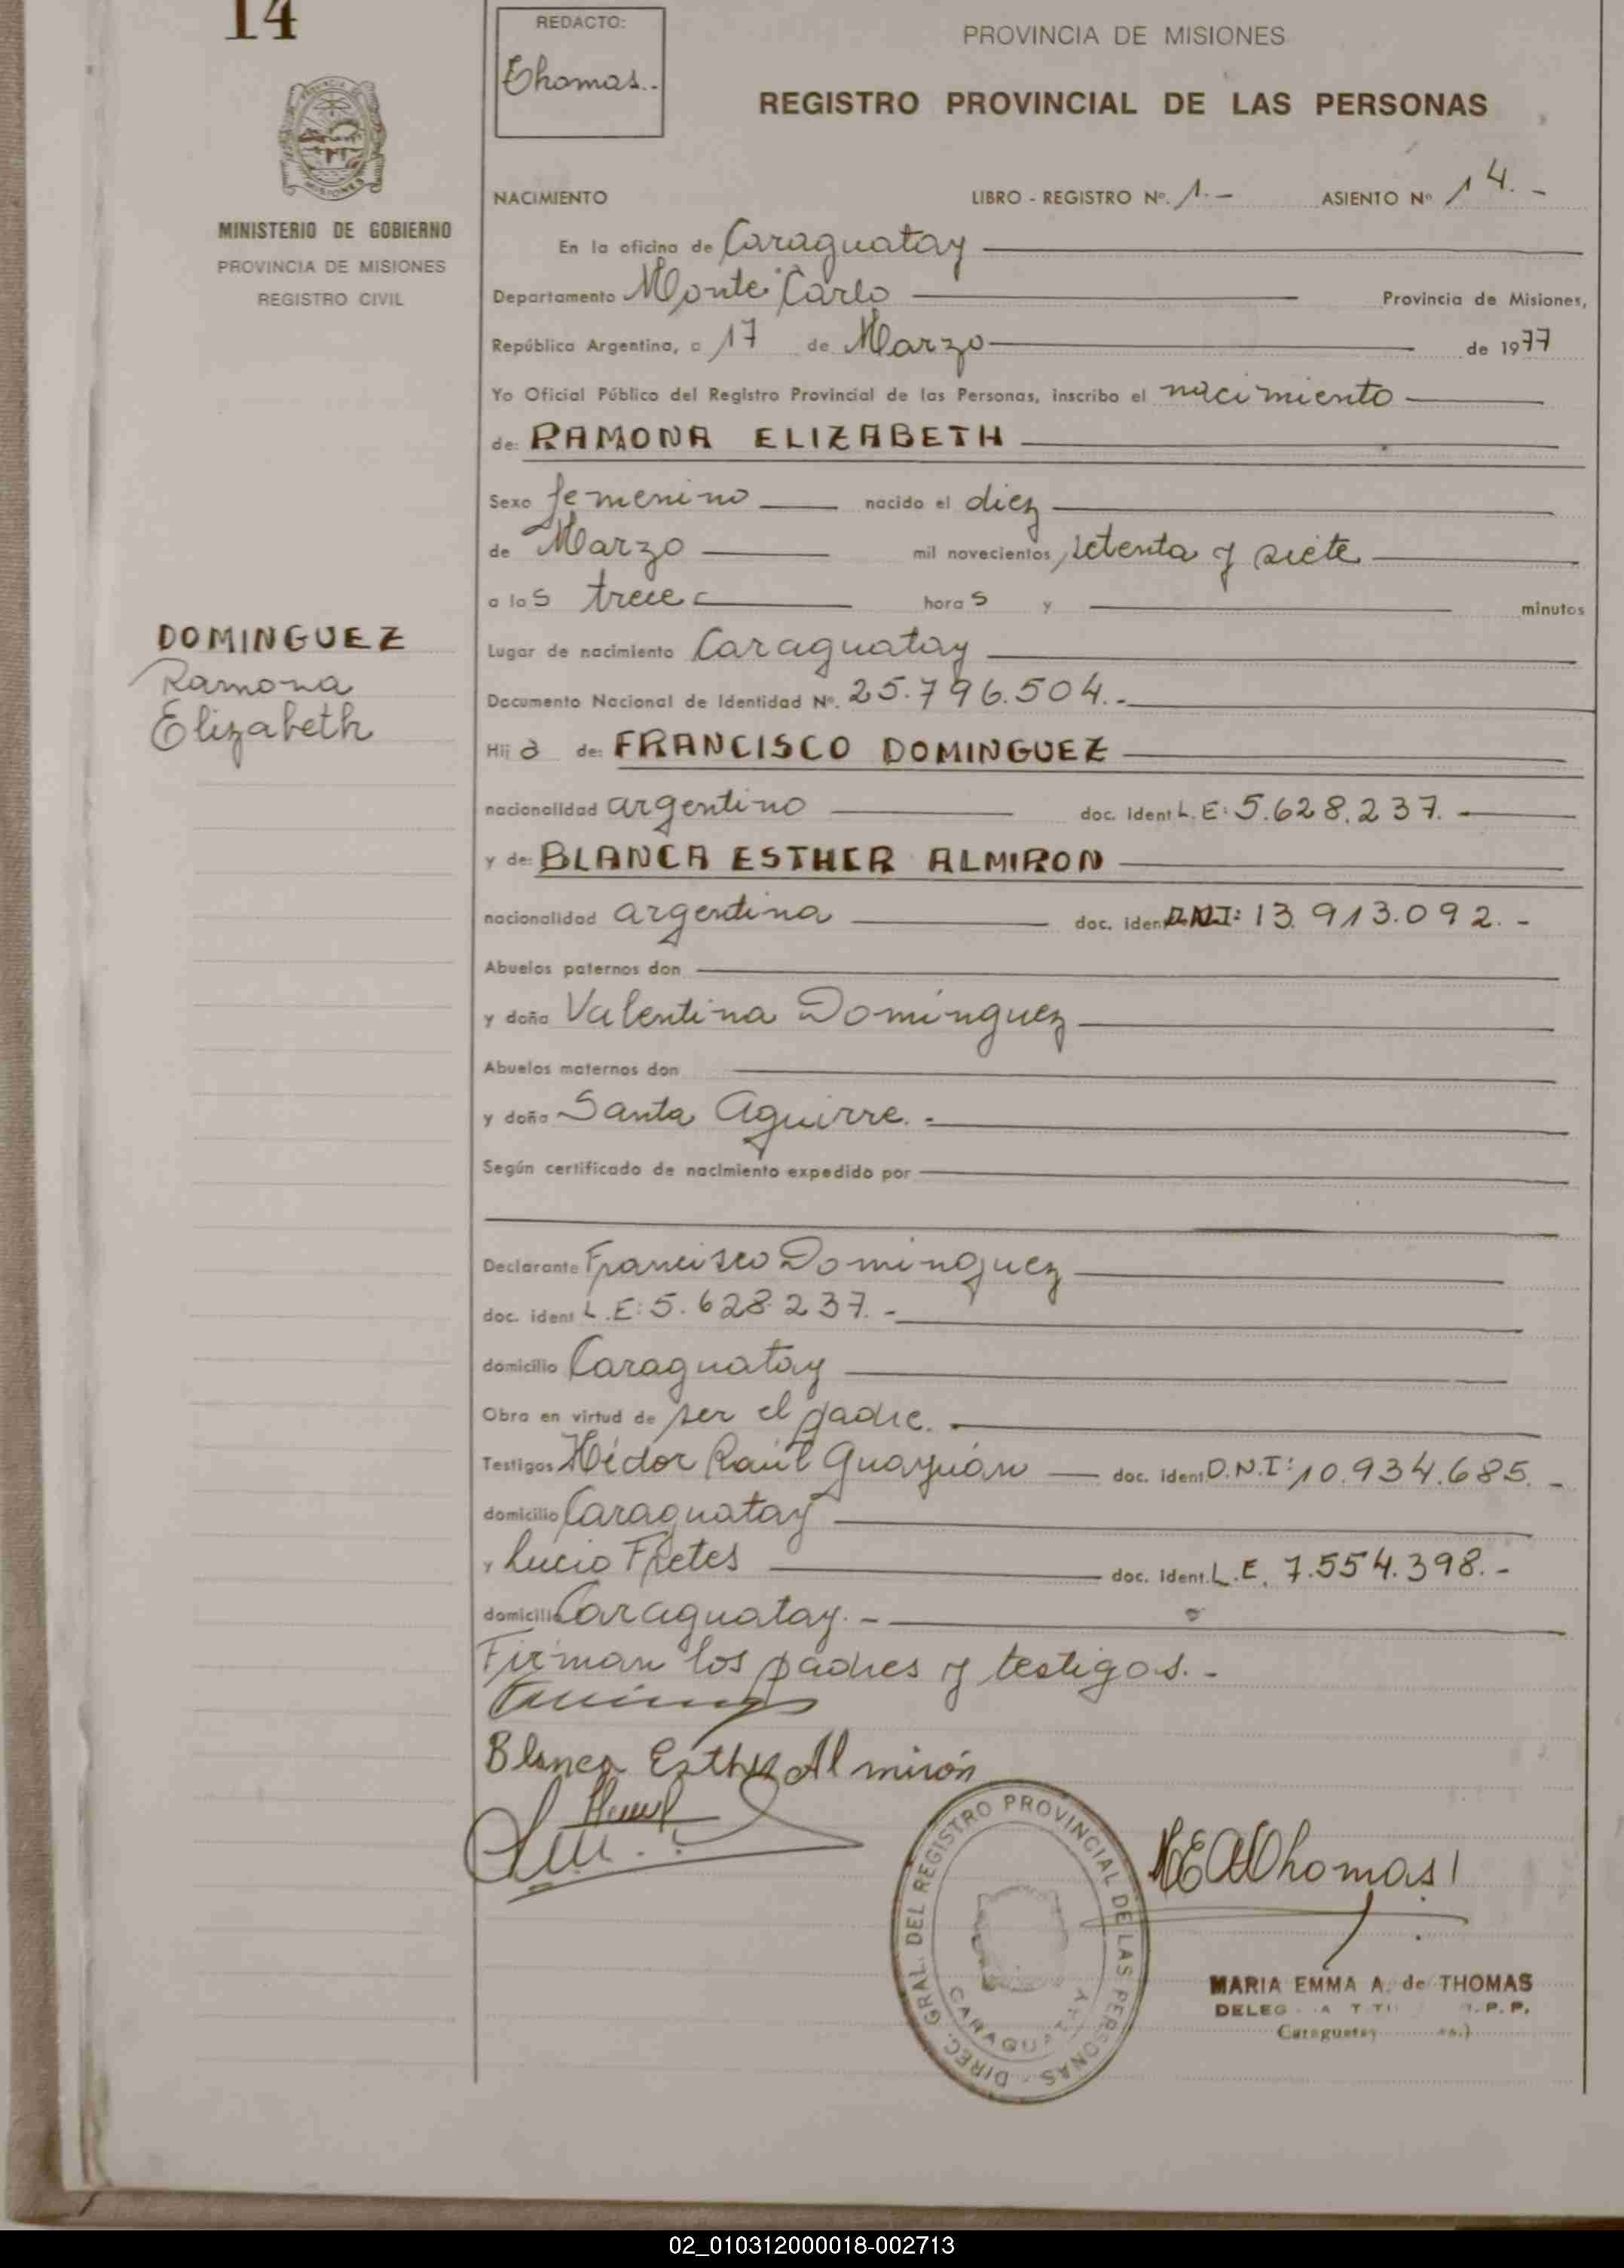 14
REDACTO:
Thomas.-
PROVINCIA DE MISIONES
REGISTRO PROVINCIAL DE LAS PERSONAS
MISIONES
MINISTERIO DE GOBIERNO
PROVINCIA DE MISIONES
REGISTRO CIVIL
NACIMIENTO LIBRO - REGISTRO Nº. 1.- ASIENTO Nº 14.-
En la oficina de Caraguatay
Departamento Monte Carlo Provincia de Misiones,
República Argentina, a 17 de Marzo de 1977
Yo Oficial Público del Registro Provincial de las Personas, inscribo el nacimiento
de: RAMONA ELIZABETH
Sexo femenino nacido el diez
de Marzo mil novecientos setenta y siete
a las trece hora s y minutos
DOMINGUEZ
Ramona
Elizabeth
Lugar de nacimiento Caraguatay
Documento Nacional de Identidad Nº. 25.796.504.-
Hij a de: FRANCISCO DOMINGUEZ
nacionalidad argentino doc. ident L.E: 5.628.237.
y de: BLANCA ESTHER ALMIRON
nacionalidad argentina doc. ident D.N.I: 13.913.092.-
Abuelos paternos don
y doña Valentina Domínguez
Abuelos maternos don
y doña Santa Aguirre.-
Según certificado de nacimiento expedido por
Declarante Francisco Domínguez
doc. ident L.E: 5.628.237.-
domicilio Caraguatay
Obra en virtud de ser el padre.
Testigos Héctor Raúl Guayuán doc. ident D.N.I: 10.934.685.-
domicilio Caraguatay
y Lucio Fretes doc. ident. L.E. 7.554.398.-
domicilio Caraguatay.-
Firman los padres y testigos.-
Blanca Esther Almirón
DIREC. GRAL. DEL REGISTRO PROVINCIAL DE LAS PERSONAS
CARAGUATAY
MEAThomas
MARIA EMMA A. de THOMAS
Caraguatay
02_010312000018-002713